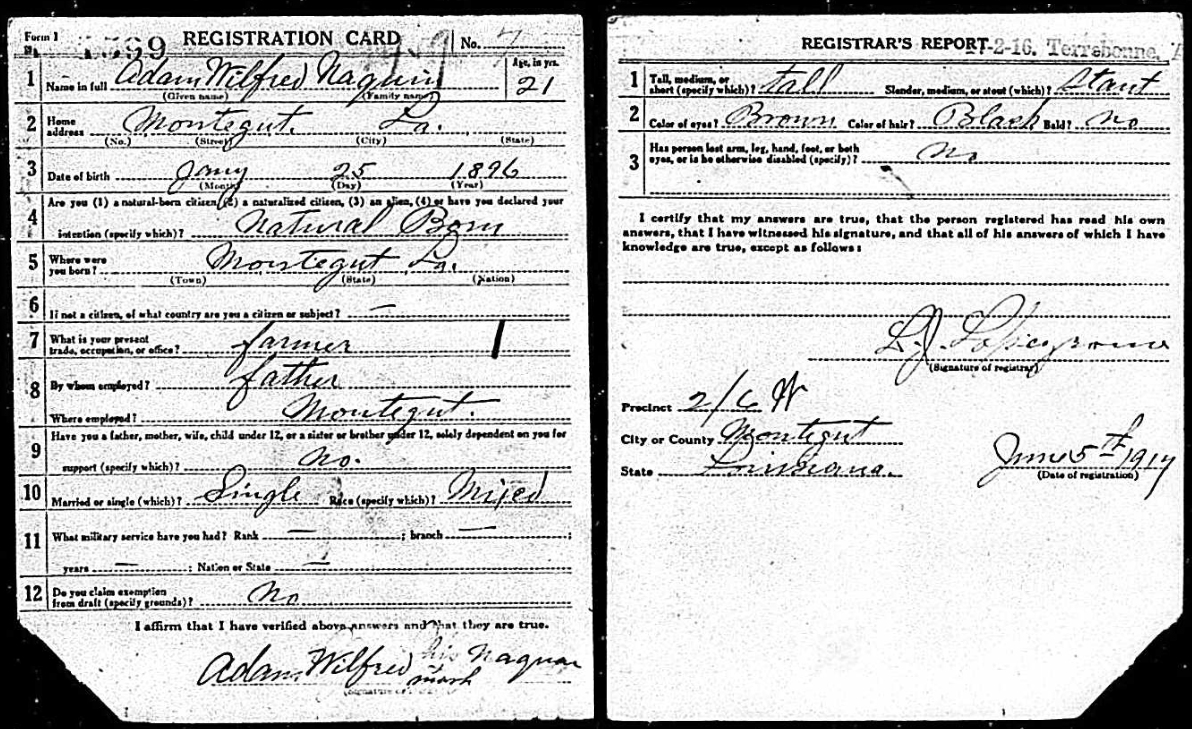 Form 1 1569 REGISTRATION CARD No. 7
1 Name in full Adam Wilfred Naquin Age, in yrs. 21
(Given name) (Family name)
2 Home address Montegut. La.
(No.) (Street) (City) (State)
3 Date of birth Jany 25 1896
(Month) (Day) (Year)
4 Are you (1) a natural-born citizen, (2) a naturalized citizen, (3) an alien, (4) or have you declared your
intention (specify which)? Natural Born
5 Where were you born? Montegut La.
(Town) (State) (Nation)
6 If not a citizen, of what country are you a citizen or subject? —
7 What is your present trade, occupation, or office? farmer
8 By whom employed? father
Where employed? Montegut.
9 Have you a father, mother, wife, child under 12, or a sister or brother under 12, solely dependent on you for
support (specify which)? No.
10 Married or single (which)? Single Race (specify which)? Mixed
11 What military service have you had? Rank — ; branch — ;
years — ; Nation or State —
12 Do you claim exemption from draft (specify grounds)? No
I affirm that I have verified above answers and that they are true.
Adam Wilfred his mark Naquin
REGISTRAR'S REPORT 2-16. Terrebonne,
1 Tall, medium, or short (specify which)? Tall Slender, medium, or stout (which)? Stout
2 Color of eyes? Brown Color of hair? Black Bald? No
3 Has person lost arm, leg, hand, foot, or both eyes, or is he otherwise disabled (specify)? No
I certify that my answers are true, that the person registered has read his own
answers, that I have witnessed his signature, and that all of his answers of which I have
knowledge are true, except as follows:
(Signature of registrar)
Precinct 2/6 W
City or County Montegut
State Louisiana. June 5th 1917
(Date of registration)